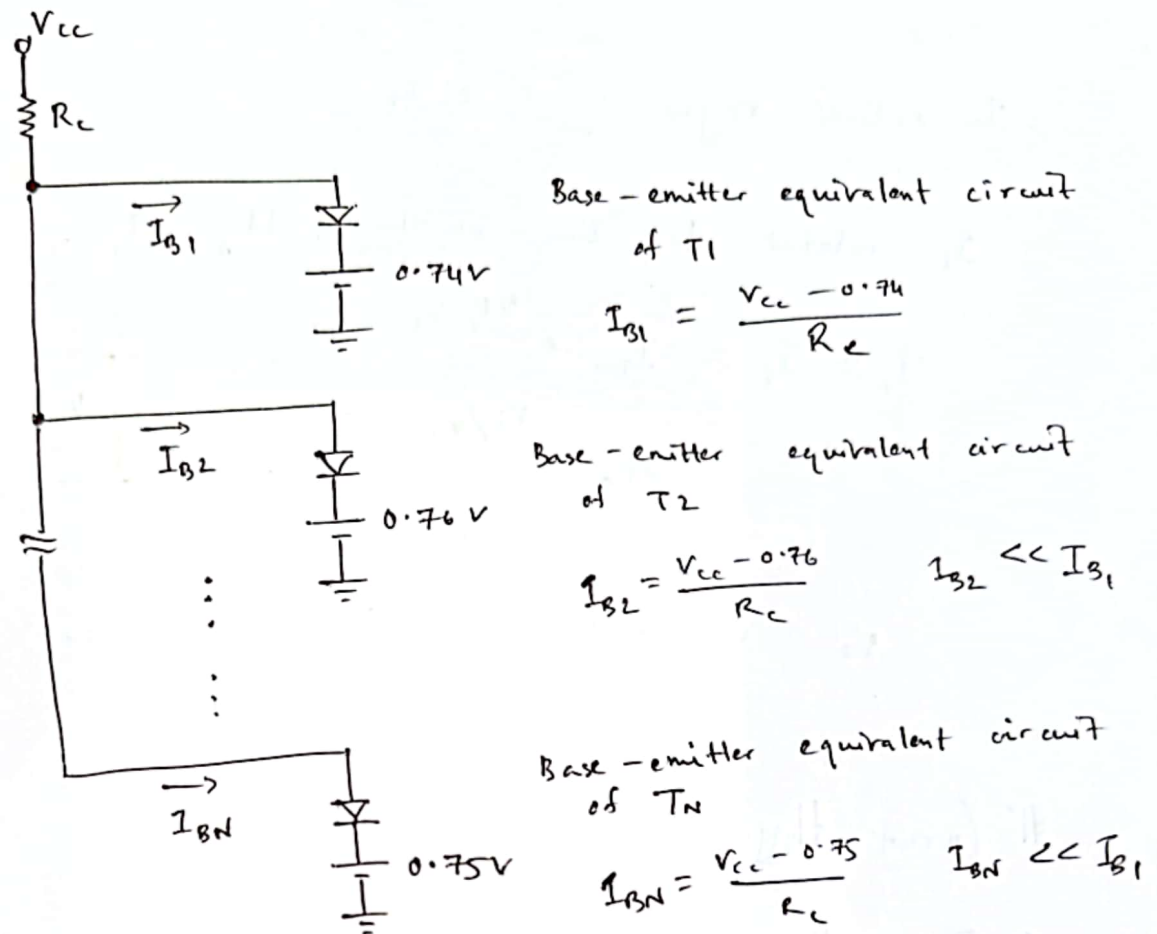 Vcc
Rc
IB1
0.74V
Base - emitter equivalent circuit
of T1
IB1 = Vcc - 0.74 / Re
IB2
0.76 V
Base - emitter equivalent circuit
of T2
IB2 = Vcc - 0.76 / Rc IB2 << IB1
IBN
0.75V
Base - emitter equivalent circuit
of TN
IBN = Vcc - 0.75 / Rc IBN << IB1